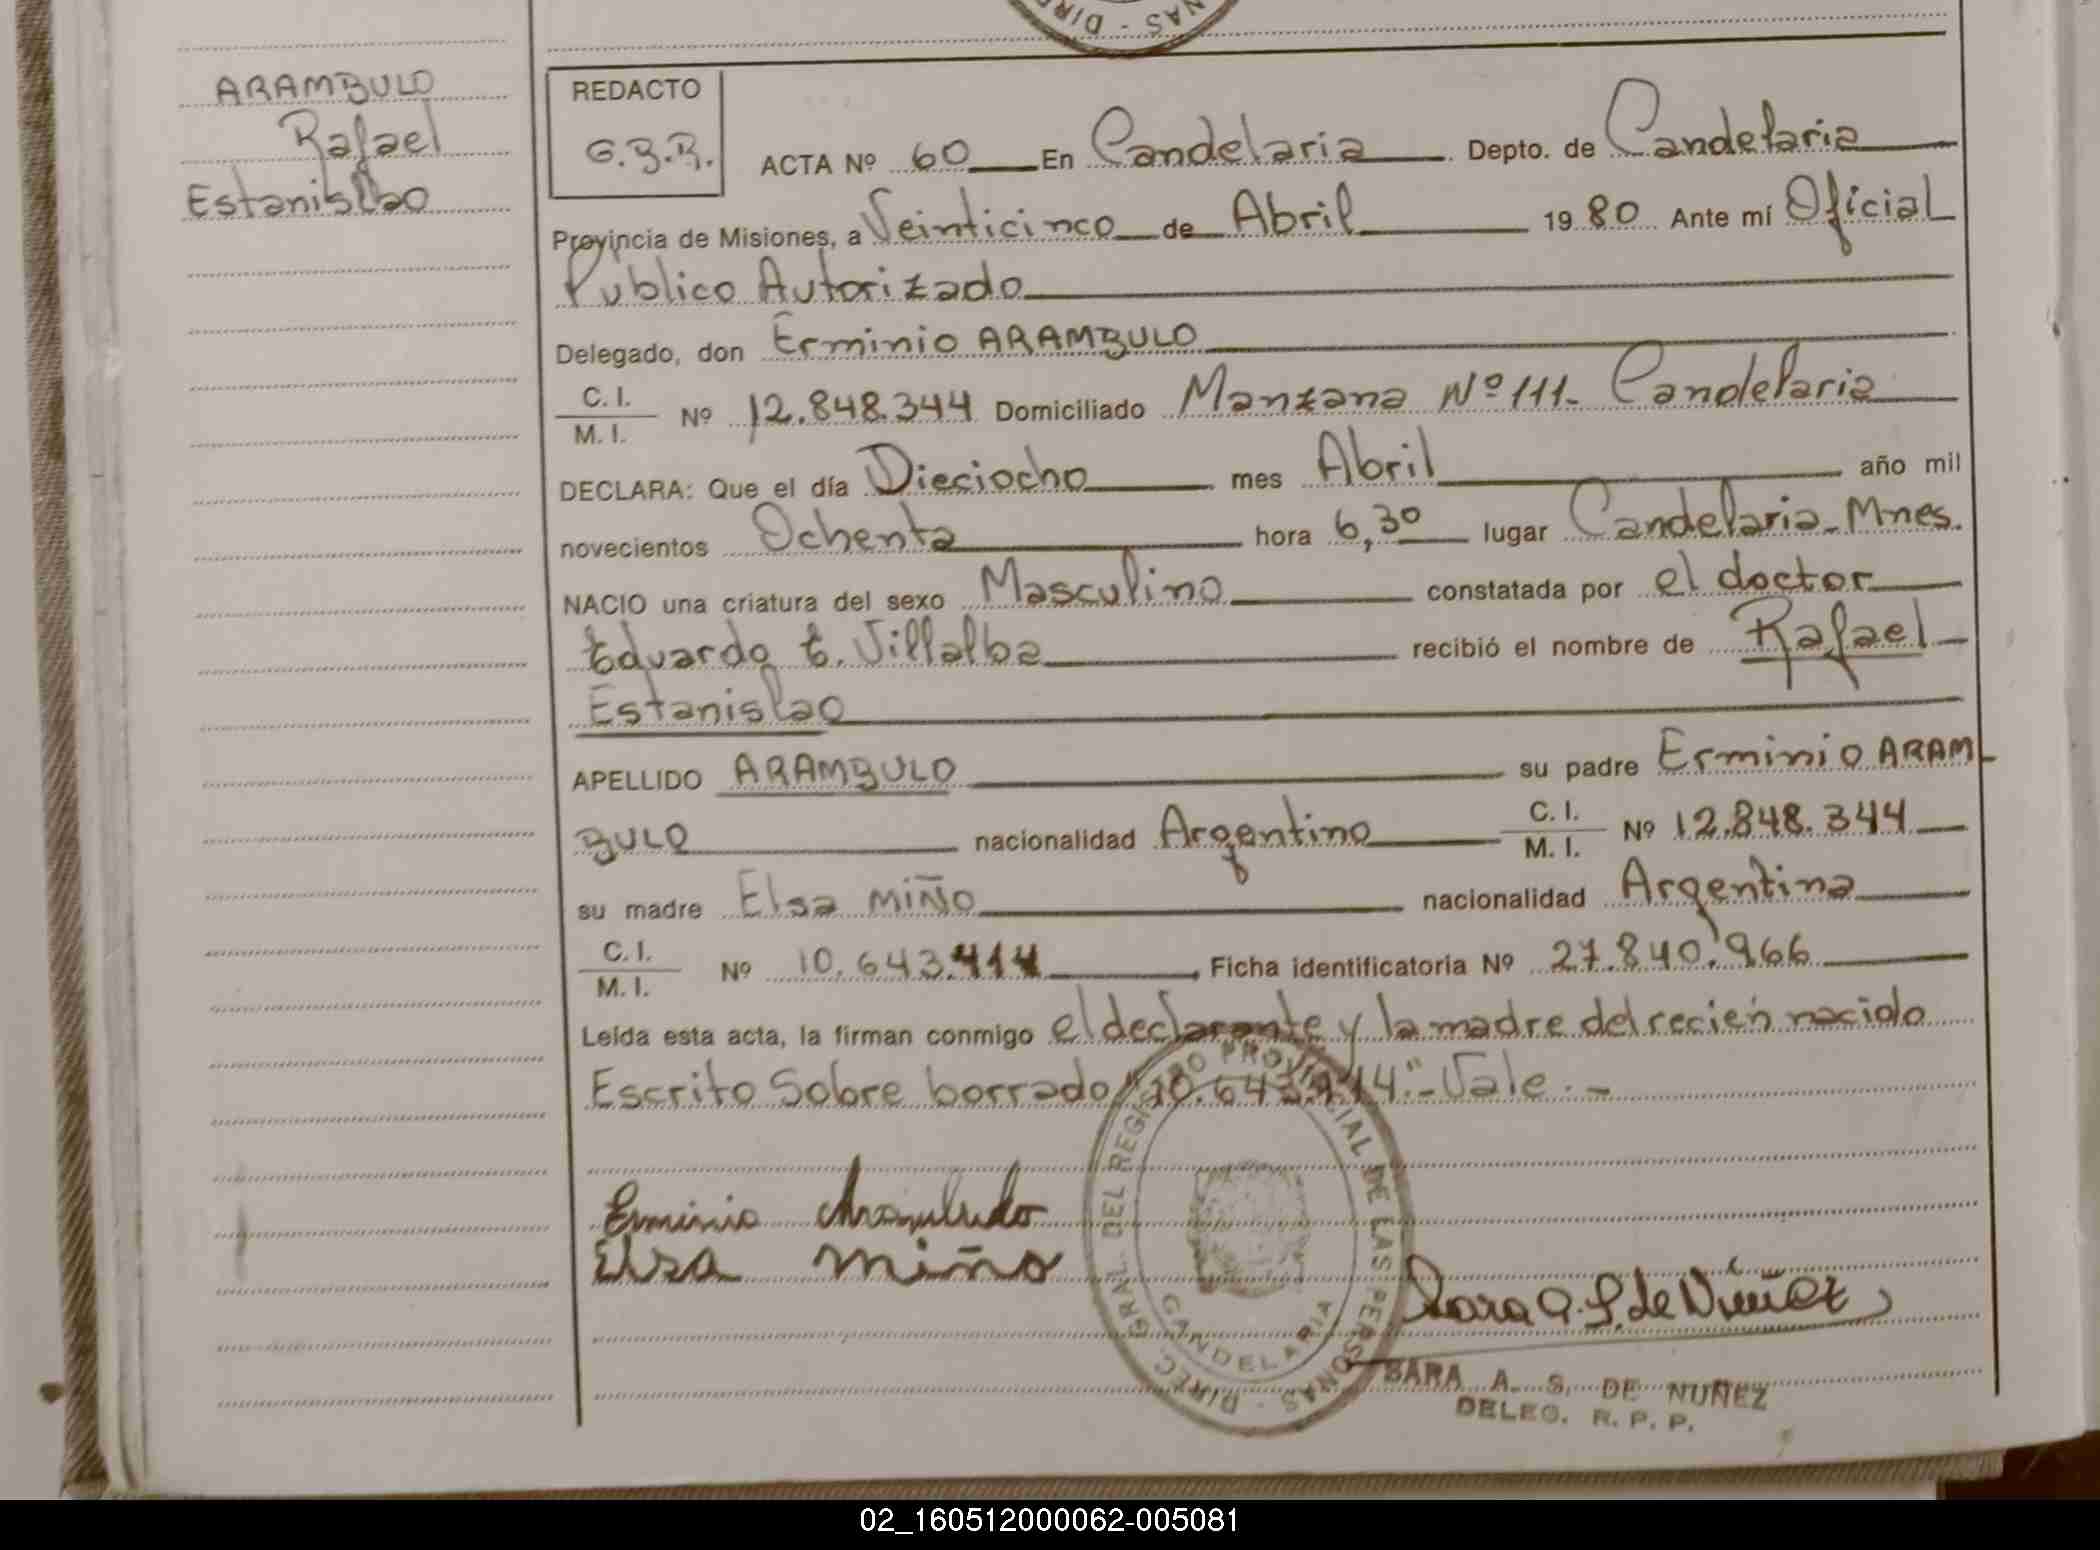 NAS - DIRE
ARAMBULO
Rafael
Estanislao
REDACTO
G.B.R.
ACTA Nº 60 En Candelaria Depto. de Candelaria
Provincia de Misiones, a Veinticinco de Abril 1980 Ante mí Oficial
Publico Autorizado
Delegado, don Erminio ARAMBULO
C. I.
M. I. Nº 12.848.344 Domiciliado Manzana Nº 111- Candelaria
DECLARA: Que el día Dieciocho mes Abril año mil
novecientos Ochenta hora 6,30 lugar Candelaria-Mnes.
NACIO una criatura del sexo Masculino constatada por el doctor
Eduardo E. Villalba recibió el nombre de Rafael
Estanislao
APELLIDO ARAMBULO su padre Erminio ARAM-
BULO nacionalidad Argentino C. I.
M. I. Nº 12.848.344
su madre Elsa MIÑO nacionalidad Argentina
C. I.
M. I. Nº 10.643.414, Ficha identificatoria Nº 27.840.966
Leída esta acta, la firman conmigo el declarante y la madre del recién nacido
Escrito Sobre borrado "10.643.414"-Vale.-
Erminio
Elsa miño
DIREC. GRAL. DEL REGISTRO PROVINCIAL DE LAS PERSONAS -
CANDELARIA
Sara A. S. de Núñez
SARA A. S. DE NUÑEZ
DELEG. R. P. P.
02_160512000062-005081